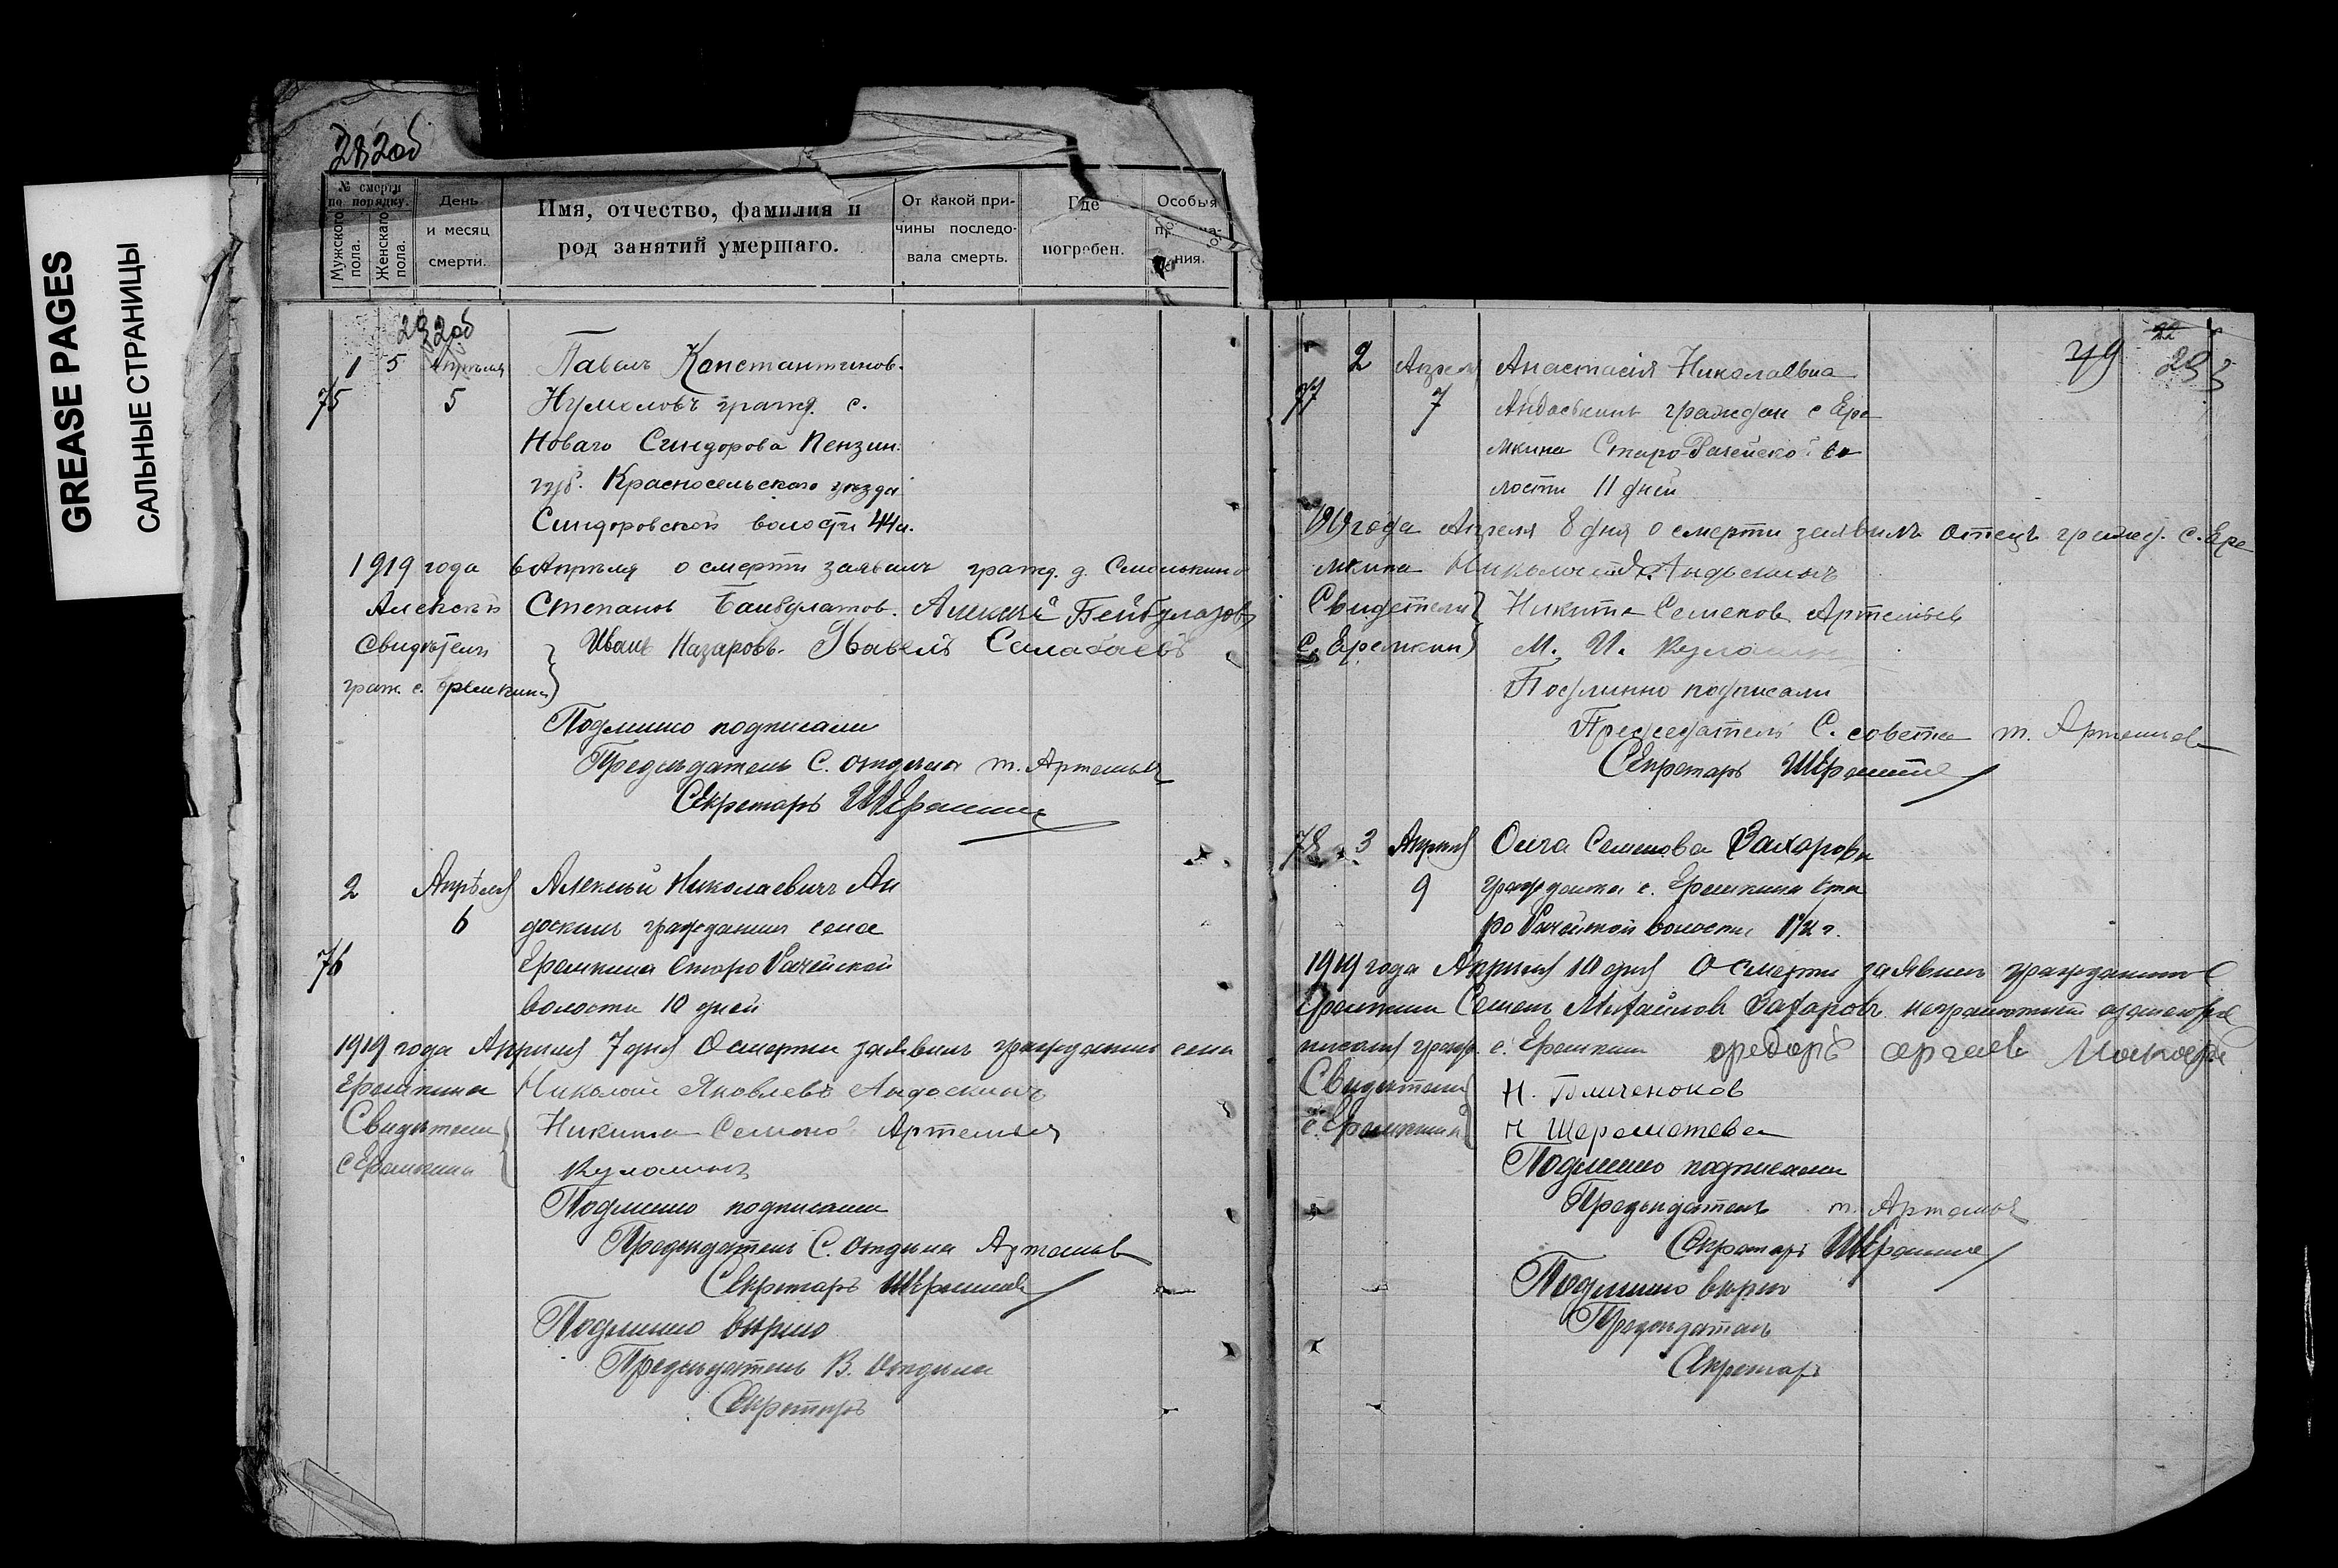 GREASE PAGES
САЛЬНЫЕ СТРАНИЦЫ
282об
№ смерти по порядку.
Мужского пола.
Женскаго пола.
День и месяц смерти.
Имя, отчество, фамилия и род занятий умершаго.
От какой причины последовала смерть.
Где погребен.
Особыя
ния.
282об
1 5 Апрѣля Павелъ Константинов.
75 5 гражд. с.
Новаго Синдорова Пензин.
губ. Красносельского уѣзда
Синдоровской волости 44 л.
1919 года 6 Апрѣля о смерти заявилъ гражд. д. Смолькино
Алексѣй Степанов Баибулатов. Алексей Бейбулатов
Свидѣтели Иванъ Назаровъ. Павелъ
граж. с. Еремкина
Подлинно подписали
Председатель С. отдела т. Артемьев
Секретарь
2 Апрѣля Алексѣй Николаевичъ Ан
6 доскинъ гражданинъ села
76 Еремкина Старо Рачейской
волости 10 дней
1919 года Апреля 7 дня О смерти заявилъ гражданин села
Еремкина Николай Яковлевъ Андоскинъ
Свидетели Никита Семенов Артемьев
с Еремкина Куломин
Подлинно подписали
Председатель С. отдела Артемьев
Секретарь
Подлинно верно
Председатель В. Отдела
Секретарь
2 Апреля Анастасія Николаевна 79 22 283
77 7 граждан с Ере
мкина Старо-Рачейской во
лости 11 дней
1919 года Апреля 8 дня о смерти заявилъ отецъ гражд. с. Ере
мкина Николай Андоскинъ
Свидетели Никита Семенов Артемьев
с. Еремкин М. И.
Подлинно подписали
Председатель С. совета т. Артемьев
Секретарь
78 3 Апреля Ольга Семенова Захарова
9 гражданка с. Еремкина Ста
ро Рачейской волости 1 1/2 г.
1919 года Апреля 10 дня О смерти заявил гражданин с
Еремкина Семен Михайлов Захаровъ неграмотный за него
гражд. с. Еремкин сергаев
Свидетели Н. Бличеноков
с. Еремкина Н Шереметева
Подлинно подписали
Председатель т. Артемьев
Секретарь
Подлинно верно
Председатель
Секретарь